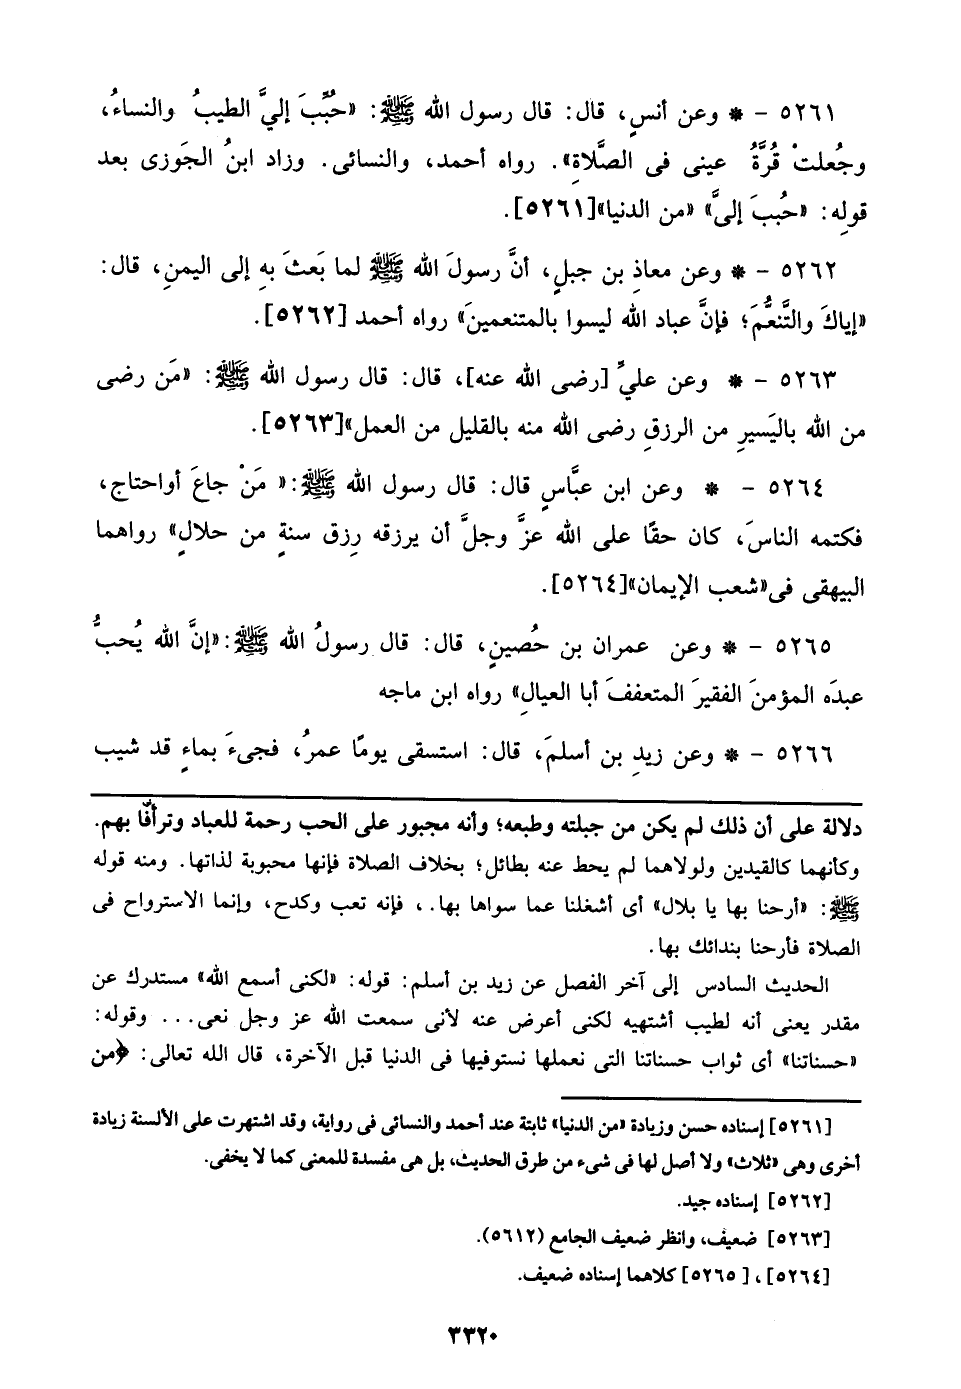 ٥٢٦١ – * وعن أنسٍ، قال: قال رسول الله ﷺ: «حُبِّبَ إليَّ الطيبُ والنساءُ،
وجُعلتْ قُرَّةُ عينى فى الصَّلاةِ». رواه أحمد، والنسائى. وزاد ابنُ الجَوزى بعد
قولِه: «حُببَ إلىَّ» «من الدنيا»[٥٢٦١].
٥٢٦٢ – * وعن معاذِ بن جبلٍ، أنَّ رسولَ الله ﷺ لما بَعثَ بهِ إلى اليمنِ، قال:
«إياكَ والتَّنعُّمَ؛ فإنَّ عباد الله ليسوا بالمتنعمينَ» رواه أحمد [٥٢٦٢].
٥٢٦٣ – * وعن عليٍّ [رضى الله عنه]، قال: قال رسول الله ﷺ: «مَن رضى
من الله باليَسيرِ من الرزقِ رضى الله منه بالقليل من العمل»[٥٢٦٣].
٥٢٦٤ – * وعن ابن عبَّاسٍ قال: قال رسول الله ﷺ:« مَنْ جاعَ أواحتاج،
فكتمه الناسَ، كان حقًا على الله عزَّ وجلَّ أن يرزقه رِزق سنةٍ من حلالٍ» رواهما
البيهقى فى«شعب الإيمان»[٥٢٦٤].
٥٢٦٥ – * وعن عمران بن حُصينٍ، قال: قال رسولُ الله ﷺ:«إنَّ الله يُحبُّ
عبدَه المؤمنَ الفقيرَ المتعففَ أبا العيالِ» رواه ابن ماجه
٥٢٦٦ – * وعن زيدِ بن أسلمَ، قال: استسقى يومًا عمرُ، فجىءَ بماءٍ قد شيب
دلالة على أن ذلك لم يكن من جبلته وطبعه؛ وأنه مجبور على الحب رحمة للعباد وترأفًا بهم.
وكأنهما كالقيدين ولولاهما لم يحط عنه بطائل؛ بخلاف الصلاة فإنها محبوبة لذاتها. ومنه قوله
ﷺ: «أرحنا بها يا بلال» أى أشغلنا عما سواها بها.، فإنه تعب وكدح، وإنما الاسترواح فى
الصلاة فأرحنا بندائك بها.
الحديث السادس إلى آخر الفصل عن زيد بن أسلم: قوله: «لكنى أسمع الله» مستدرك عن
مقدر يعنى أنه لطيب أشتهيه لكنى أعرض عنه لأنى سمعت الله عز وجل نعى... وقوله:
«حسناتنا» أى ثواب حسناتنا التى نعملها نستوفيها فى الدنيا قبل الآخرة، قال الله تعالى: ﴿من
[٥٢٦١] إسناده حسن وزيادة «من الدنيا» ثابتة عند أحمد والنسائى فى رواية، وقد اشتهرت على الألسنة زيادة
أخرى وهى «ثلاث» ولا أصل لها فى شىء من طرق الحديث، بل هى مفسدة للمعنى كما لا يخفى.
[٥٢٦٢] إسناده جيد.
[٥٢٦٣] ضعيف، وانظر ضعيف الجامع (٥٦١٢).
[٥٢٦٤]، [ ٥٢٦٥] كلاهما إسناده ضعيف.
٣٣٢٠